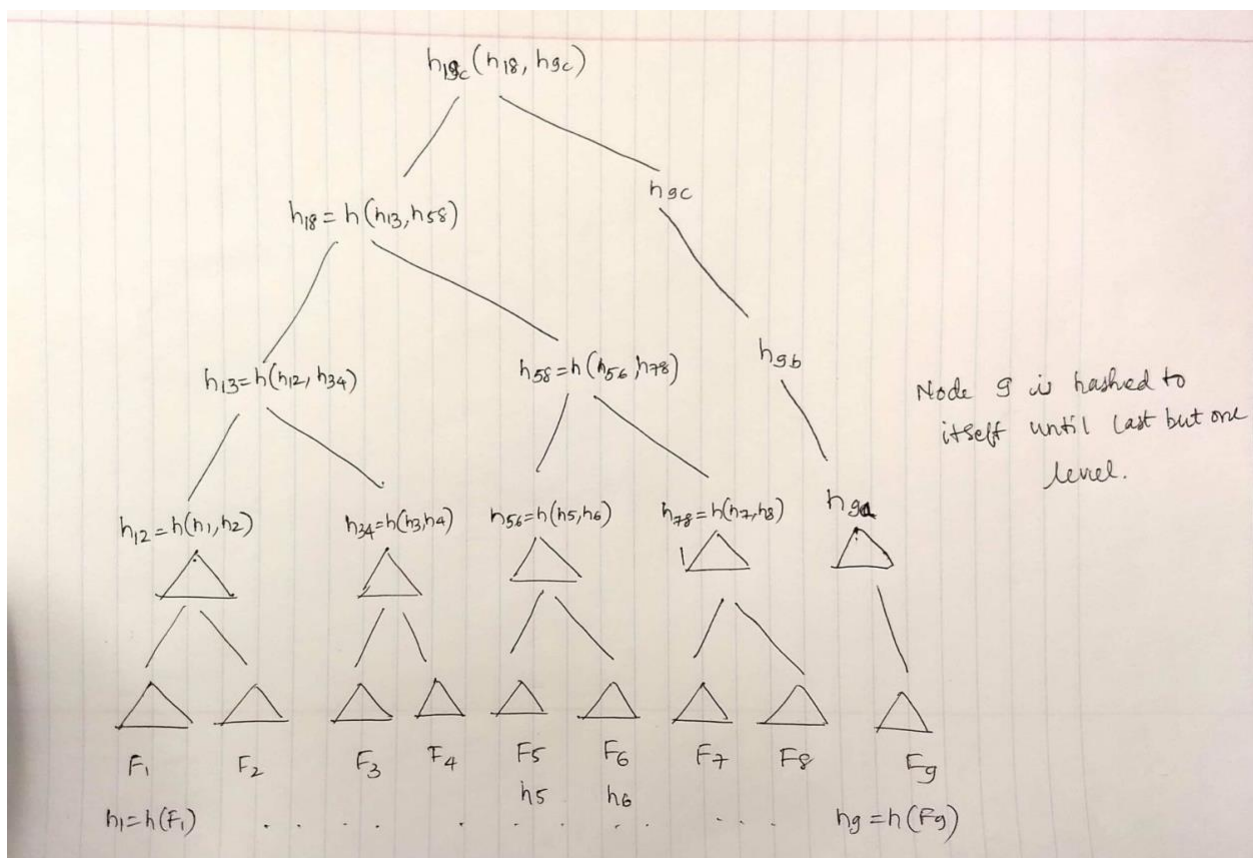 h19c (h18, h9c)
h9c
h18 = h(h13, h58)
h9b
h13=h(h12, h34)
h58=h(h56, h78)
Node 9 is hashed to
itself until last but one
level.
h12=h(h1, h2)
h34=h(h3, h4)
h56=h(h5, h6)
h78=h(h7, h8)
h9a
F1
F2
F3
F4
F5
F6
F7
F8
F9
h5
h6
h1=h(F1)
. . . . . . . . . . .
h9 = h(F9)